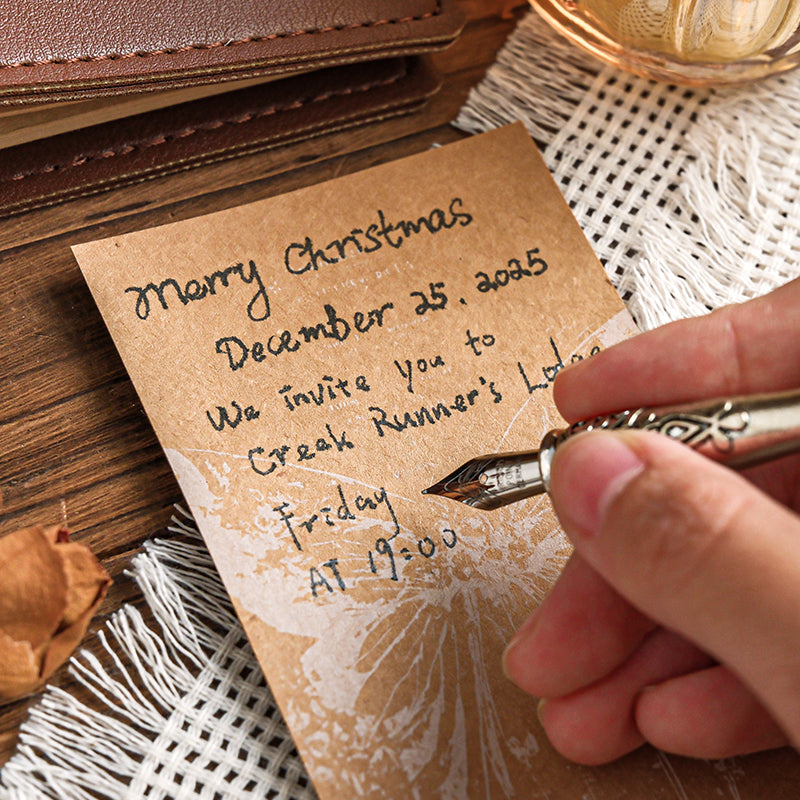 Merry Christmas
December 25, 2025
We invite you to
Creek Runner's Lodge
Friday
AT 19:00